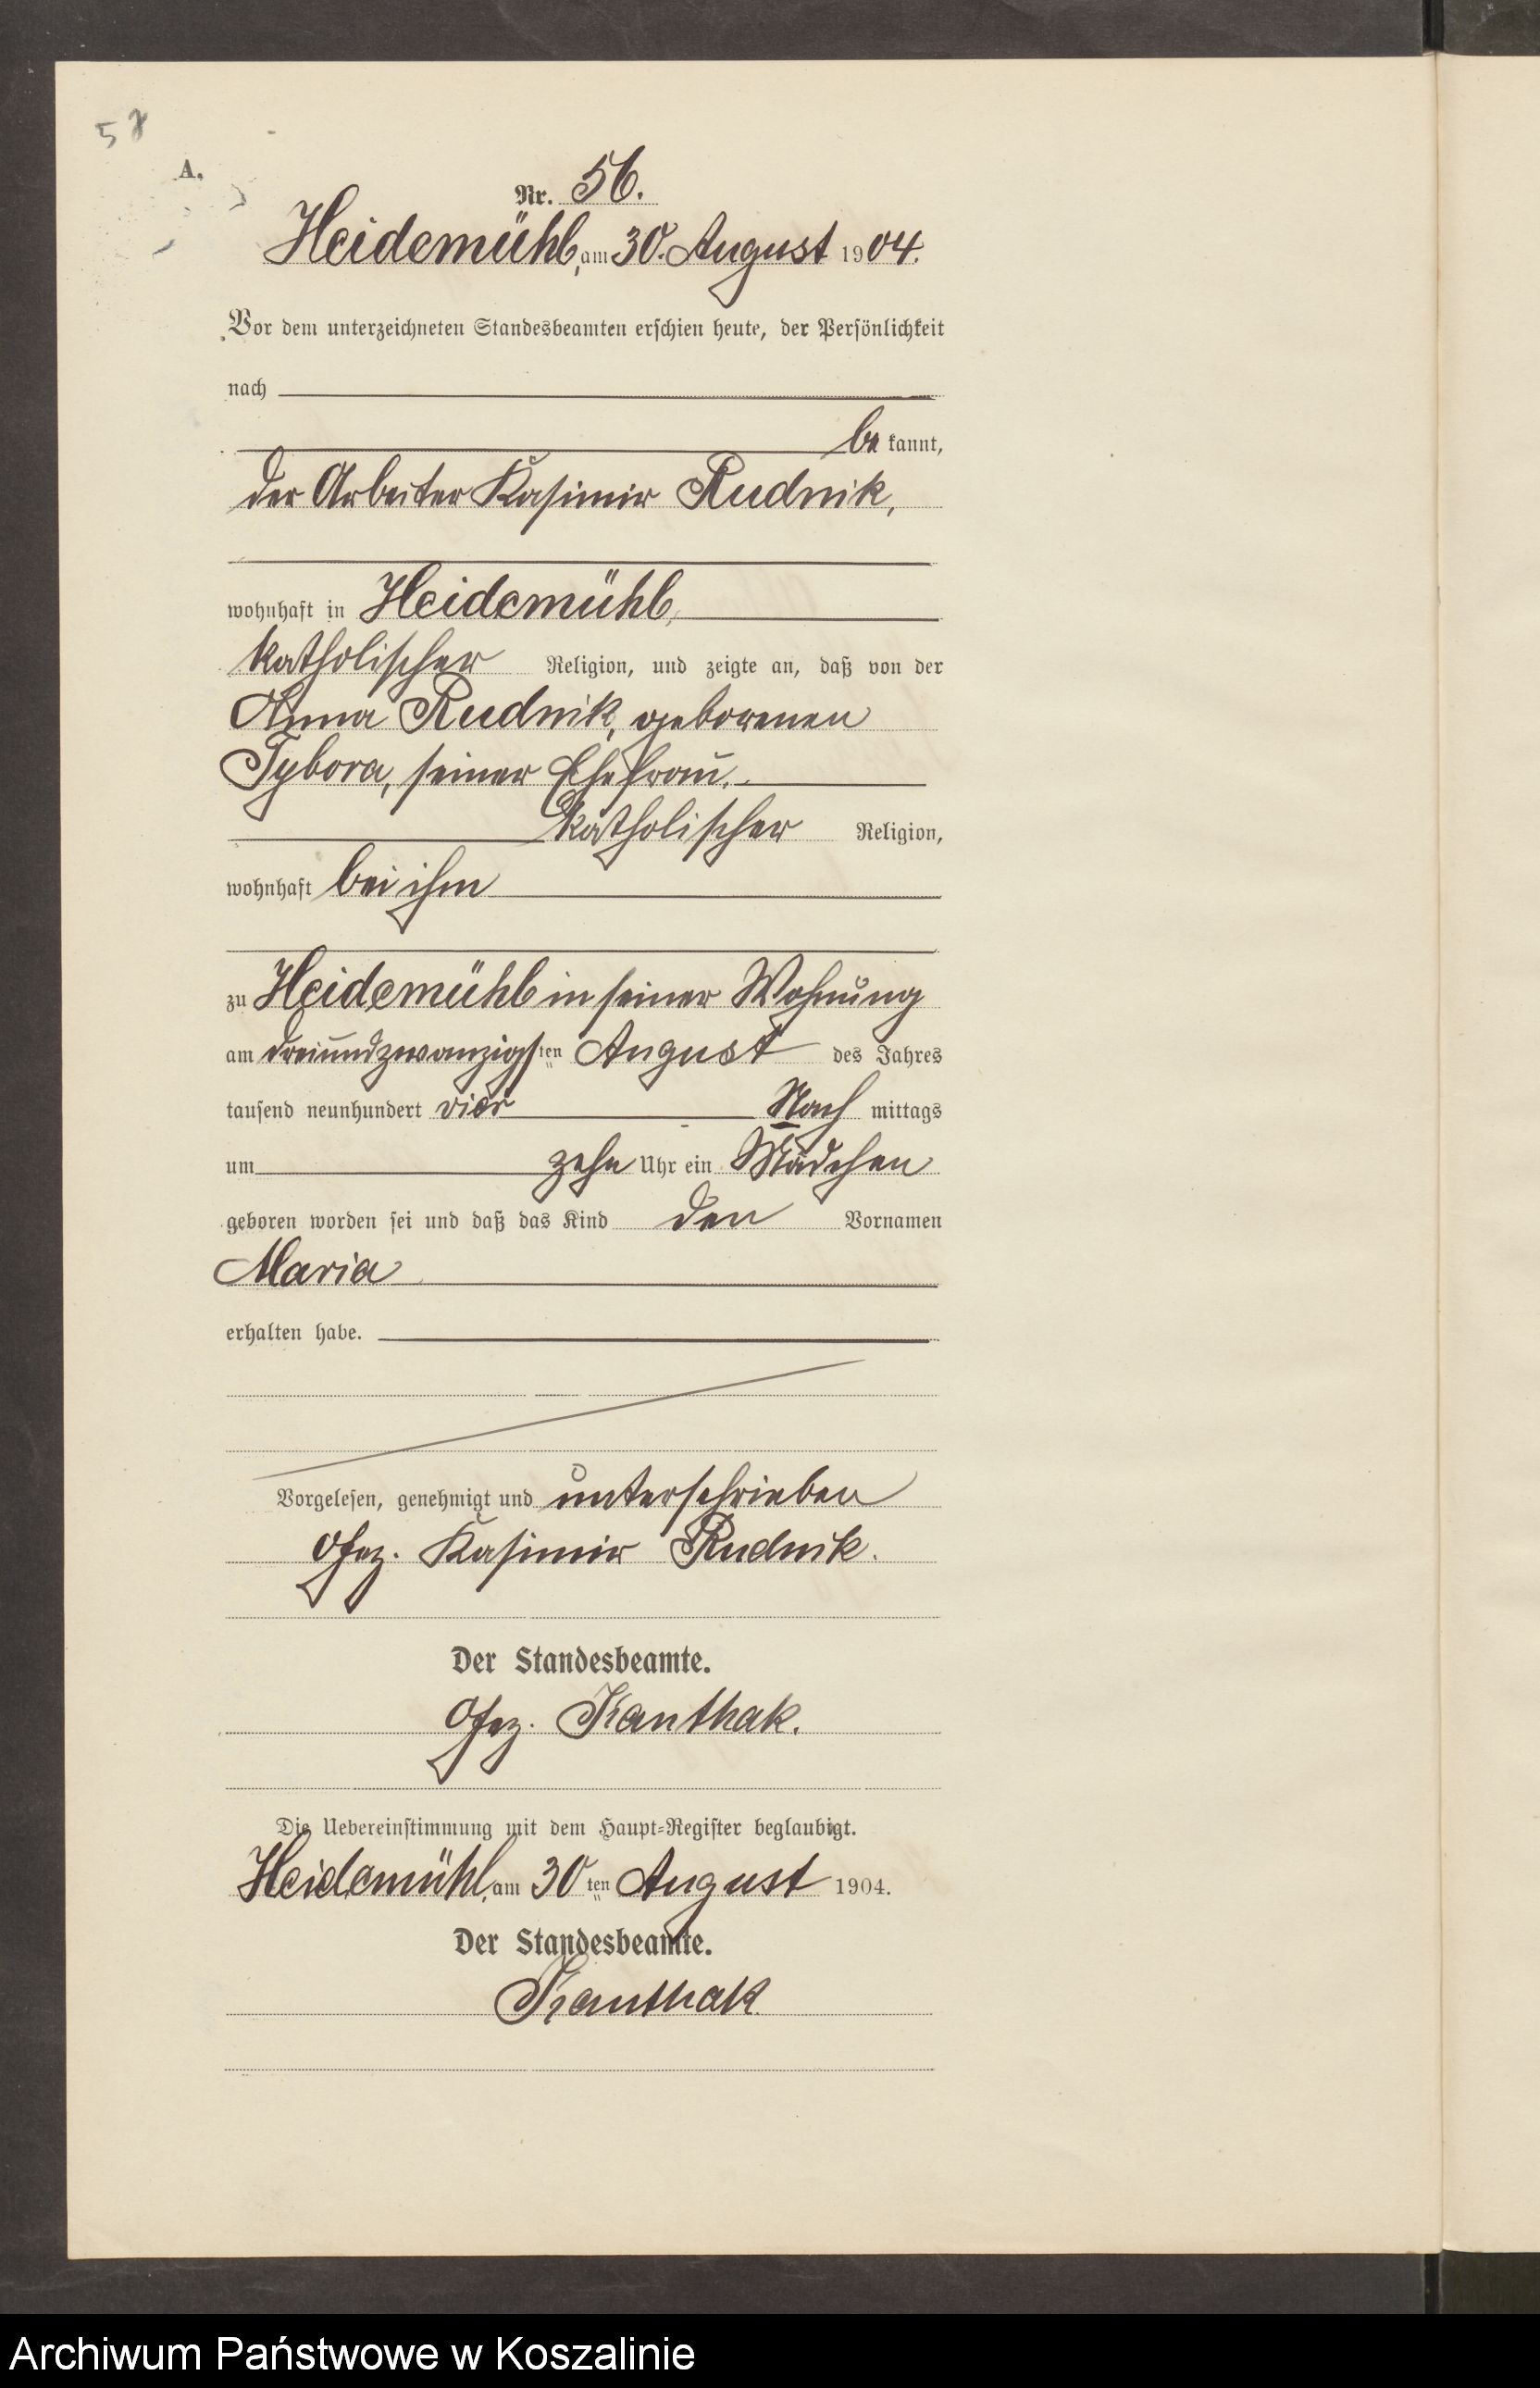 58
A.
Nr. 56.
Heidemühl, am 30. August 1904.
Vor dem unterzeichneten Standesbeamten erschien heute, der Persönlichkeit
nach
be kannt,
der Arbeiter Kasimir Rudnik,
wohnhaft in Heidemühl,
katholischer Religion, und zeigte an, daß von der
Anna Rudnik, geborenen
Tybora, seiner Ehefrau,
katholischer Religion,
wohnhaft bei ihm
zu Heidemühl in seiner Wohnung
am dreiundzwanzigsten August des Jahres
tausend neunhundert vier Nach mittags
um zehn Uhr ein Mädchen
geboren worden sei und daß das Kind den Vornamen
Maria
erhalten habe.
Vorgelesen, genehmigt und unterschrieben
Gez. Kasimir Rudnik.
Der Standesbeamte.
Gez. Kanthak.
Die Uebereinstimmung mit dem Haupt-Register beglaubigt.
Heidemühl, am 30 ten August 1904.
Der Standesbeamte.
Kanthak
Archiwum Państwowe w Koszalinie